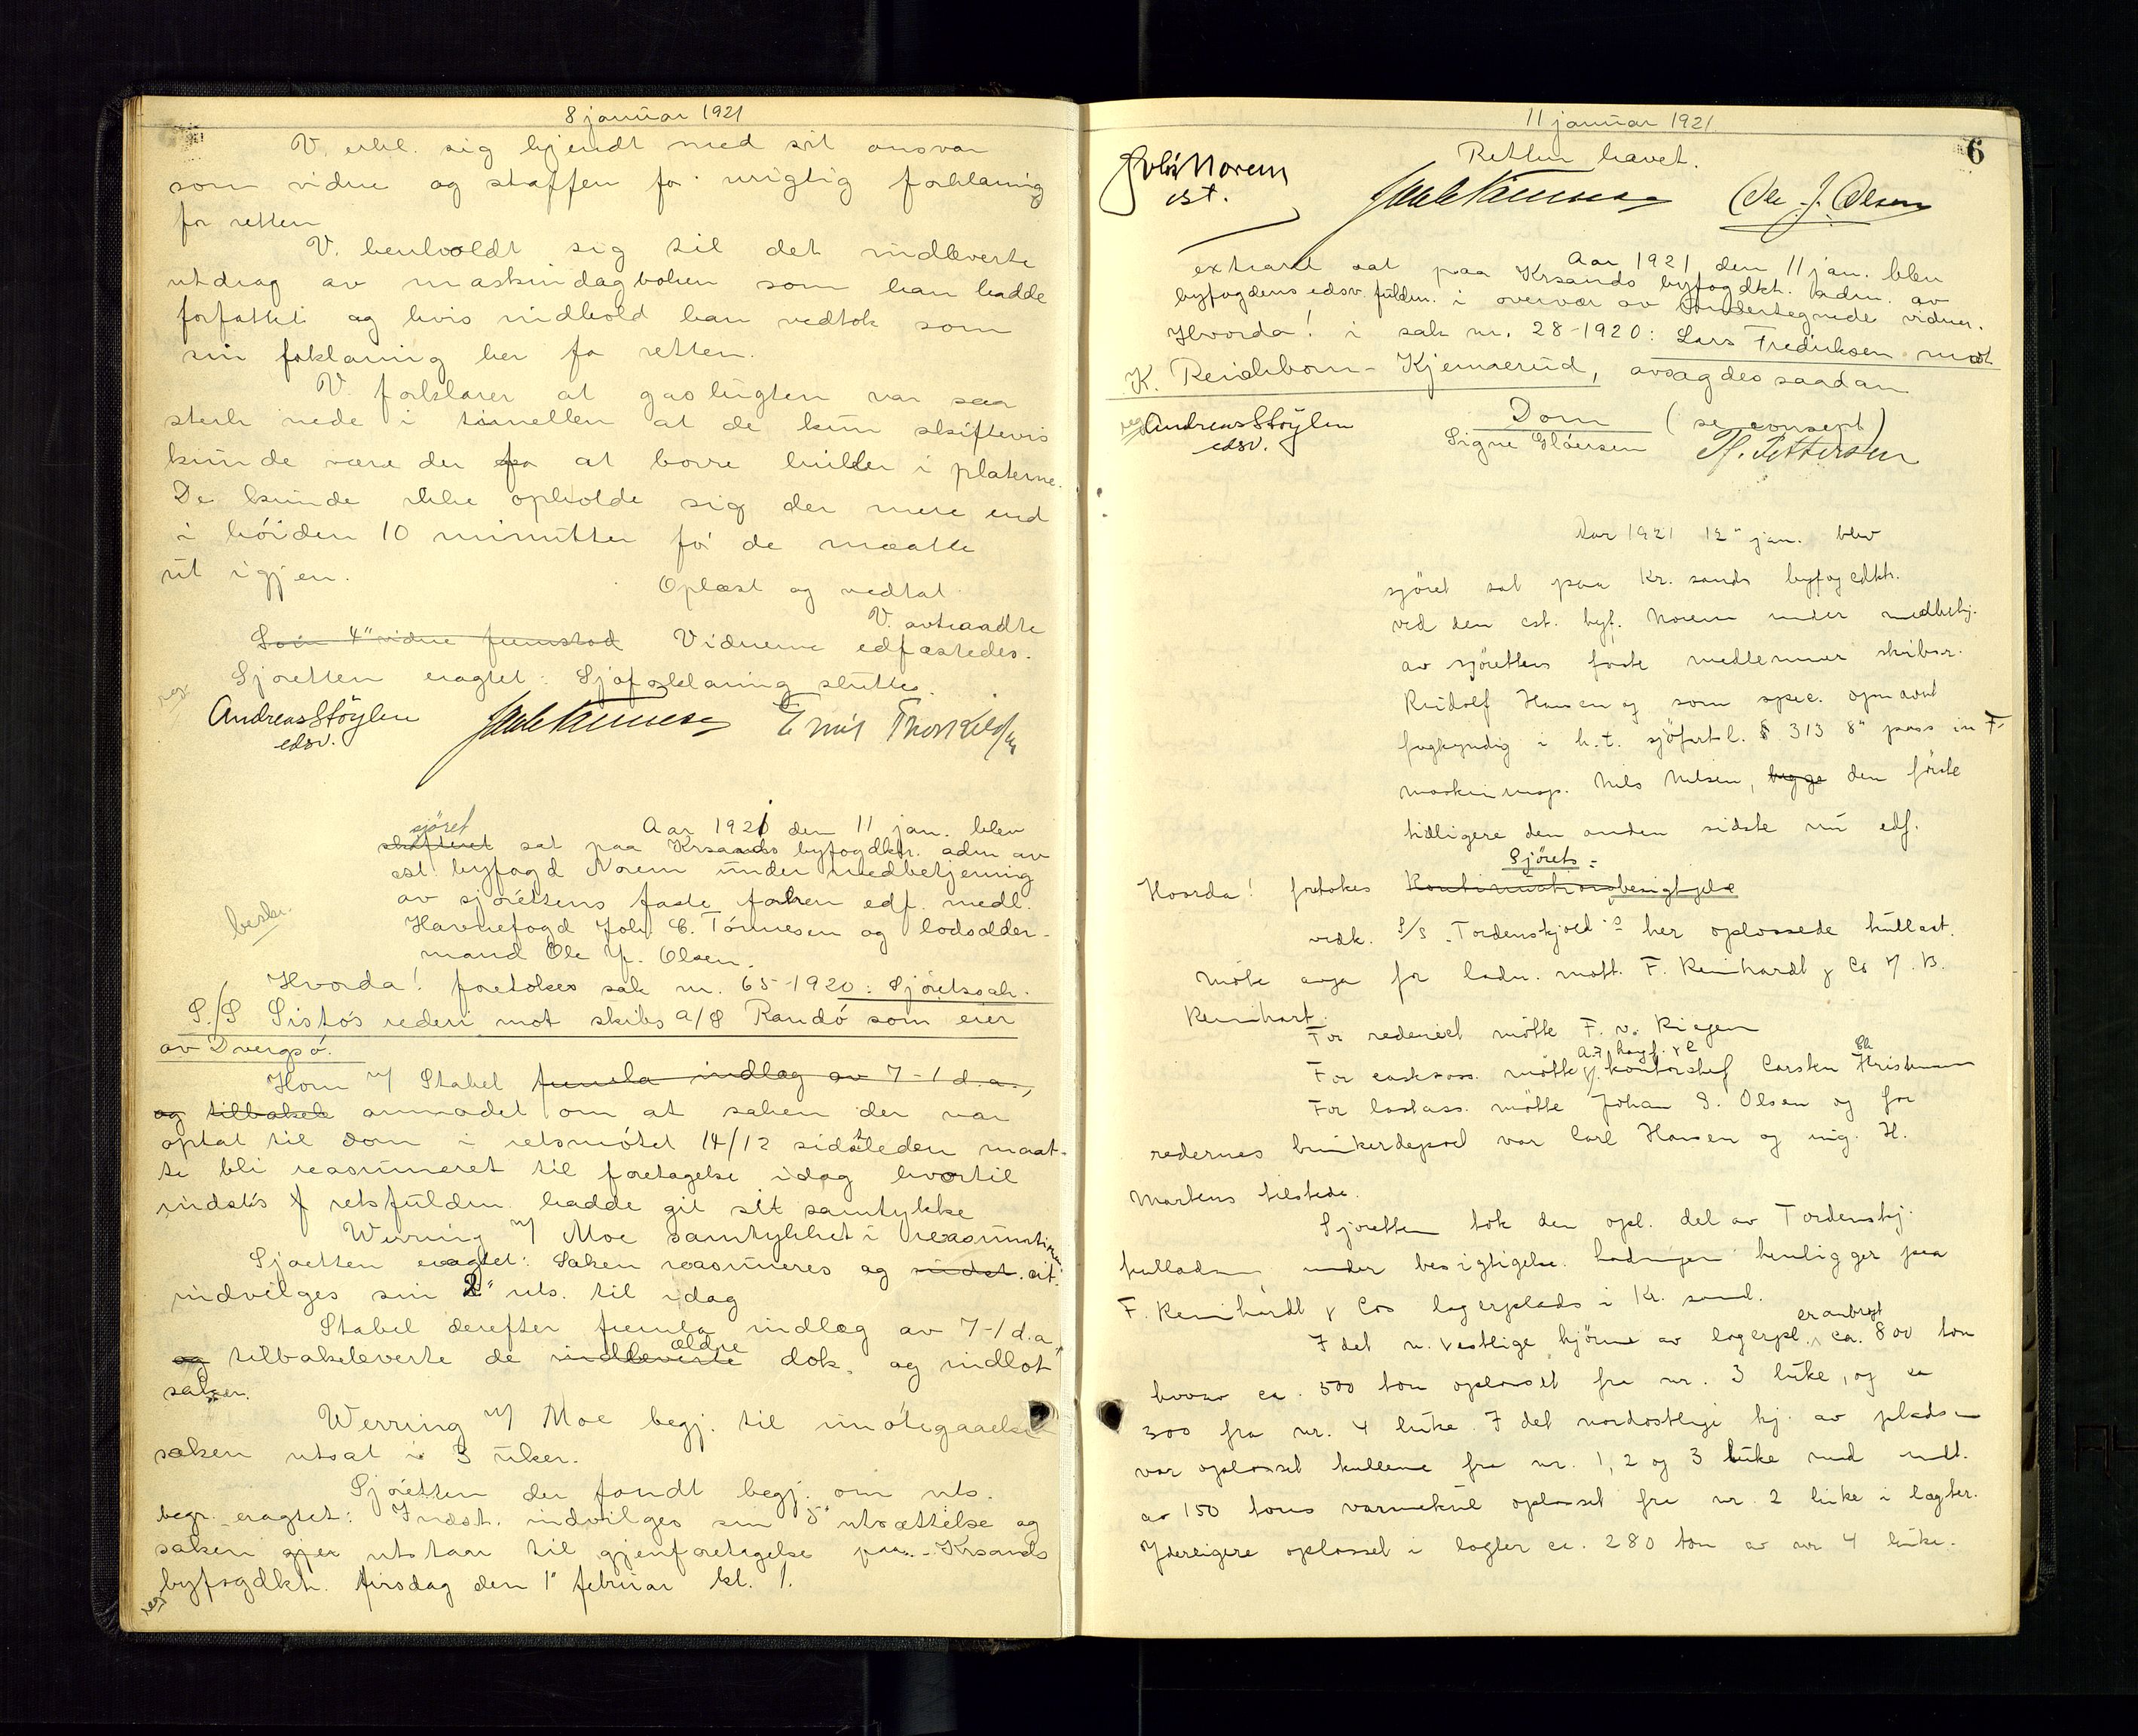 8 januar 1921
V. erkl. sig kjendt med sit ansvar
som vidne og straffen for urigtig forklaring
for retten
V. henholdt sig til det indleverte
utdrag av maskindagboken som han hadde
forfattet og hvis indhold han vedtok som
sin foklaring her fo retten.
V. forklarer at gaslugten var saa
sterk nede i tunellen at de kun skiftevis
kunde være der fo at borre huller i platerne.
De kunde ikke opholde sig der mere end
i höiden 10 minutter för de maatte
ut igjen.
Oplæst og vedtat
V. avtraadte
Som 4" vidne fremstod Vidnerne edfæstedes.
Sjöretten eragtet: Sjöforklaring sluttes.
Andreas Stöylen
edsv.
Emil Thorkelsen
Aar 1921 den 11 jan. blev
sjöret
skifteret sat paa Krsands byfogdktr. adm av
cst. byfogd Norem under medbetjening
av sjörettens faste forhen edf. medl.
Havnefogd Joh. C. Tönnesen og lodsolder-
mand Ole J. Olsen.
Hvorda! foretokes sak nr. 65-1920: Sjöretssak.
S/S Sistos rederi mot skibs a/S Randö som eier
av Dvergsö.
Horn m/ Stabel fremla indlag av 7-1 d.a.,
og tilbakele anmodet om at saken der var
optat til dom i retsmötet 14/12 sidstleden maat-
te bli reasumeret til foretagelse idag hvortil
indst's f retsfuldm. hadde git sit samtykke
Werring m/ Moe samtykket i reasumtionen
Sjöretten eragtet: Saken reasumeres og indst. cit.
indvilges sin 2" uts. til idag
Stabel derefter fremla indlæg av 7-1 d.a.
ældre
og tilbakeleverte de indleverte dok. og indlot
saken.
Werring m/ Moe begj. til imötegaaelse
saken utsat i 3 uker.
Sjöretten der fandt begj. om uts.
begr. eragtet: Indst. indvilges sin 5" utsættelse og
saken gjen utstaar til gjenforetagelse paa Krsands
byfogdktr. tirsdag den 1" februar kl. 1.
11 januar 1921
6
Retten hævet.
Norem
cst.
Ole J. Olsen
Aar 1921 den 11 jan. blev
extraret sat paa Krsands byfogdktr. adm. av
byfogdens edsv. fuldm. i overvær av undertegnede vidner.
Hvorda! i sak nr. 28-1920: Lars Fredriksen mot
K. Reichborn-Kjennerud, avsagdes saadan
Dom (se consept)
Andreas Stöylen
edsv.
Signe Clausen
H. Pettersen
Aar 1921 12" jan. blev
sjöret sat paa Kr.sands byfogedktr.
ved den cst. byf. Norem under medbetj.
av sjörettens faste medlemmer skibsr.
Rudolf Hansen og som spec. opnævnt
fagkyndig i h.t. sjöfartsl. § 313 8" pass. in F.
maskininsp. Nils Nilsen, begge den förste
tidligere den anden sidste nu edf.
Sjörets-
Hvorda! foretokes Kontinuationsbesigtigelse
vedk. S/S "Tordenskjold"s her oplossede kullast.
Möte avga for ladn. mott. F. Reinhardt & Co v/ B.
Reinhart.
For rederiet mötte F. v. Riegen
For caskoass. mötte v. kontorchef Carsten Christensen
For lastass. mötte Johan S. Olsen og for
redernes bunkerdepot var Carl Hansen og ing. H.
Martens tilstede.
Sjöretten tok den opl. del av Tordenskj.
kulladn. under besigtigelse. Ladningen henligger paa
F. Reinhardt & Cos lagerplads i Kr. sand.
er anbragt
I det n. vestlige hjörne av lagerpl. ca. 800 ton
hvorav ca. 500 ton oplosset fra nr. 3 luke, og ca
300 fra nr. 4 luke. I det nordostlige hj. av pladsen
var oplosset kullene fra nr. 1, 2 og 3 luke med undt.
av 150 tons varmekul oplosset fra nr. 2 luke i lægter.
Yderligere oplosset i lægter ca. 280 ton av nr 4 luke.